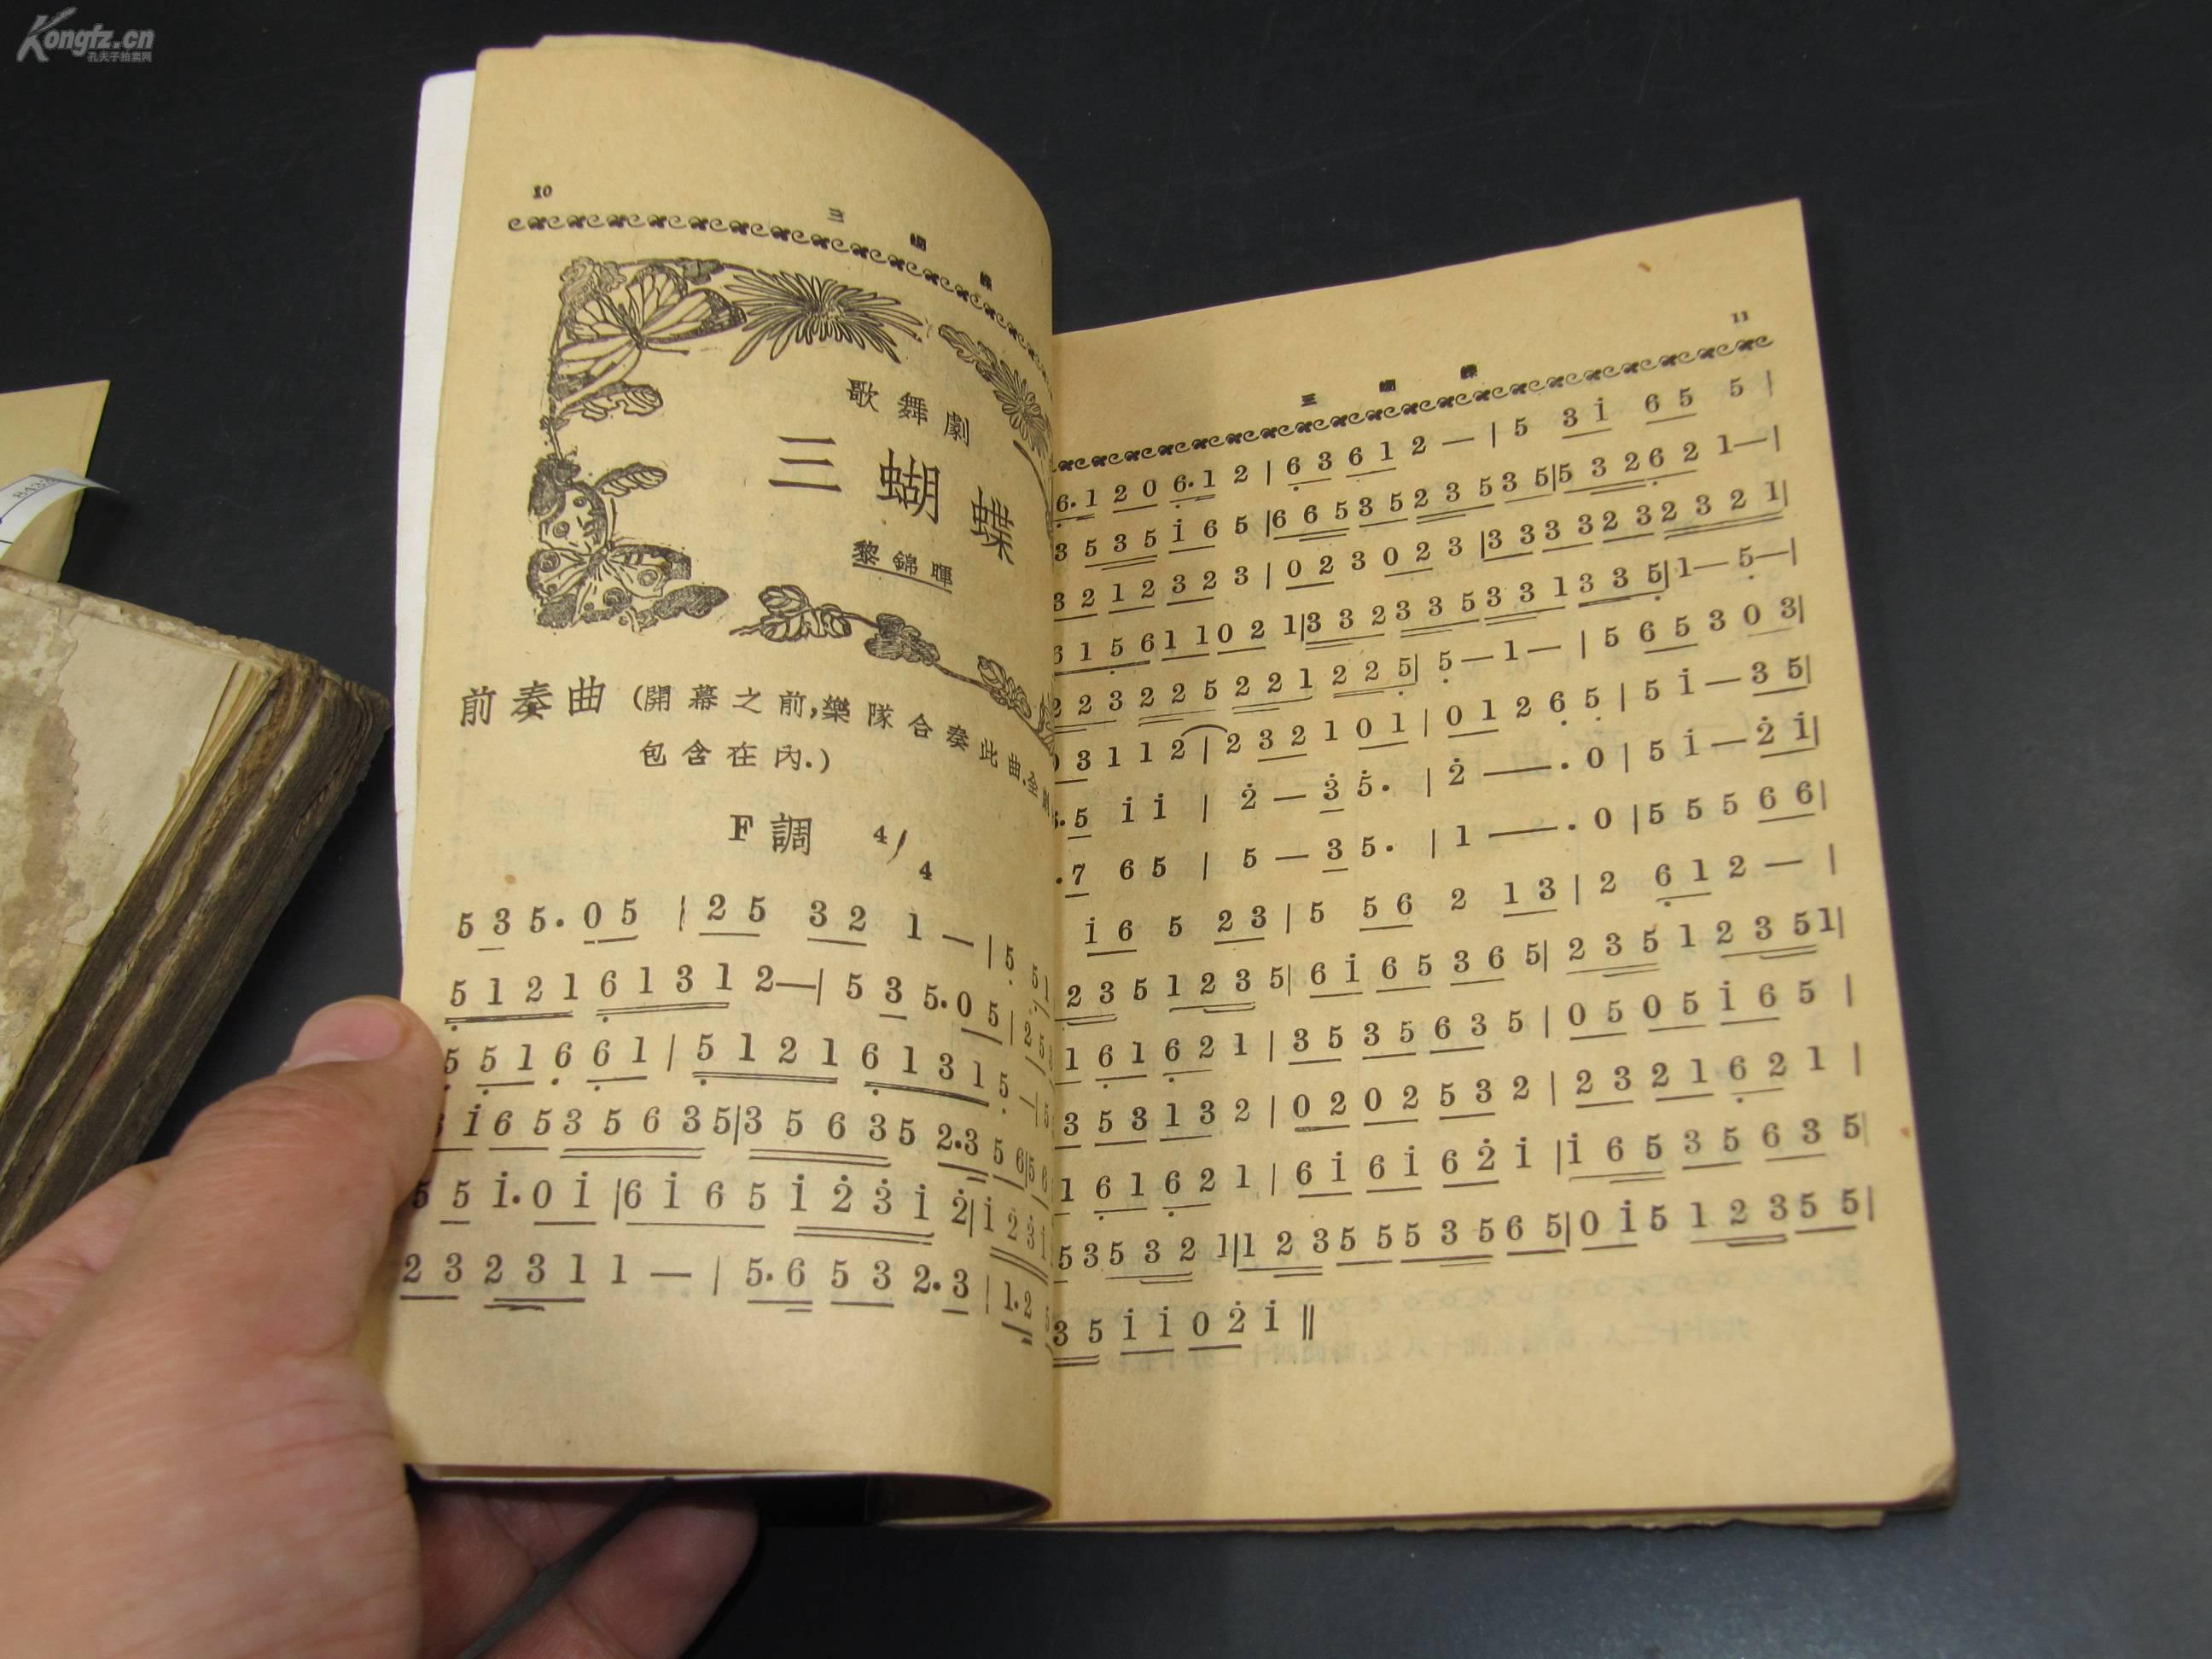 Kongfz.cn
孔夫子拍卖网
10
三 蝴 蝶
歌舞劇
三蝴蝶
黎錦暉
前奏曲 (開幕之前,樂隊合奏此曲,全
包含在內.)
F調 4/4
5 3 5. 0 5 | 2 5 3 2 1 — | 5
5 1 2 1 6 1 3 1 2 — | 5 3 5. 0 5
5 5 1 6 6 1 | 5 1 2 1 6 1 3 1 5
i 6 5 3 5 6 3 5 | 3 5 6 3 5 2. 3 5 6 | 5
5 5 i. 0 i | 6 i 6 5 i 2̇ 3̇ i 2̇ | i 2
2 3 2 3 1 1 — | 5. 6 5 3 2. 3 | 1. 2
11
三 蝴 蝶
6. 1 2 0 6. 1 2 | 6 3 6 1 2 — | 5 3 i 6 5 5 |
3 5 3 5 i 6 5 | 6 6 5 3 5 2 3 5 3 5 | 5 3 2 6 2 1 — |
3 2 1 2 3 2 3 | 0 2 3 0 2 3 | 3 3 3 3 2 3 2 3 2 1 |
6 1 5 6 1 1 0 2 1 | 3 3 2 3 3 5 3 3 1 3 3 5 | 1 — 5 — |
2 2 3 2 2 5 2 2 1 2 2 5 | 5 — 1 — | 5 6 5 3 0 3 |
0 3 1 1 2 | 2 3 2 1 0 1 | 0 1 2 6 5 | 5 i — 3 5 |
. 5 i i | 2̇ — 3̇ 5̇. | 2̇ — . 0 | 5 i — 2̇ i |
. 7 6 5 | 5 — 3 5. | 1 — . 0 | 5 5 5 6 6 |
i 6 5 2 3 | 5 5 6 2 1 3 | 2 6 1 2 — |
2 3 5 1 2 3 5 | 6 i 6 5 3 6 5 | 2 3 5 1 2 3 5 1 |
1 6 1 6 2 1 | 3 5 3 5 6 3 5 | 0 5 0 5 i 6 5 |
3 5 3 1 3 2 | 0 2 0 2 5 3 2 | 2 3 2 1 6 2 1 |
1 6 1 6 2 1 | 6 i 6 i 6 2̇ i | i 6 5 3 5 6 3 5 |
5 3 5 3 2 1 | 1 2 3 5 5 5 3 5 6 5 | 0 i 5 1 2 3 5 5 |
3 5 i i 0 2̇ i ‖